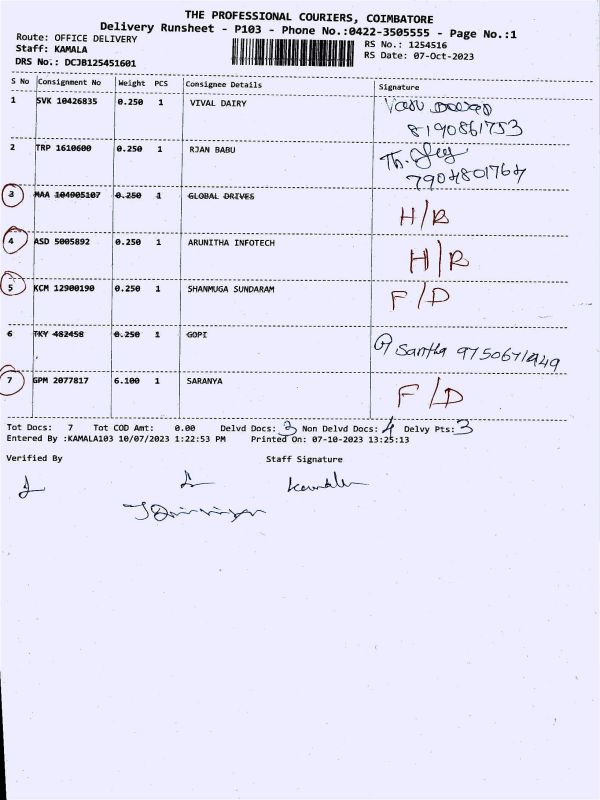 THE PROFESSIONAL COURIERS, COIMBATORE
Delivery Runsheet - P103 - Phone No.:0422-3505555 - Page No.:1
Route: OFFICE DELIVERY
RS No.: 1254516
Staff: KAMALA
RS Date: 07-Oct-2023
DRS No.: DCJB125451601
S No Consignment No Weight PCS Consignee Details Signature
1 SVK 10426835 0.250 1 VIVAL DAIRY
8190861753
2 TRP 1610600 0.250 1 RJAN BABU Th.
7904801764
3 MAA 104005107 0.250 1 GLOBAL DRIVES H/R
4 ASD 5005892 0.250 1 ARUNITHA INFOTECH H/R
5 KCM 12900190 0.250 1 SHANMUGA SUNDARAM F/D
6 TKY 482458 0.250 1 GOPI Santha 9750671949
7 GPM 2077817 6.100 1 SARANYA F/D
Tot Docs: 7 Tot COD Amt: 0.00 Delvd Docs: 3 Non Delvd Docs: 4 Delvy Pts: 3
Entered By :KAMALA103 10/07/2023 1:22:53 PM Printed On: 07-10-2023 13:25:13
Verified By Staff Signature